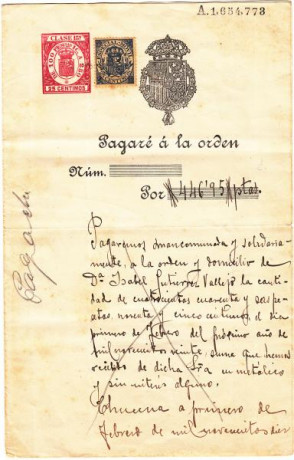 A.1.654,773
CLASE 12ª
25 CENTIMOS
Pagaré á la orden
Núm.
Por #446'95# ptas.
Pagaré
Pagaremos mancomunada y solidaria-
mente, a la orden y domicilio de
Dª Isabel Gutierrez Vallejo la canti-
dad de cuatrocientas cuarenta y seis pe-
setas, noventa y cinco centimos, el dia
primero de Febrero del próximo año de
mil novecientos veinte, suma que hemos
recibido de dicha Sra en metalico
y sin interés alguno.
a primero de
Febrero de mil novecientos diez